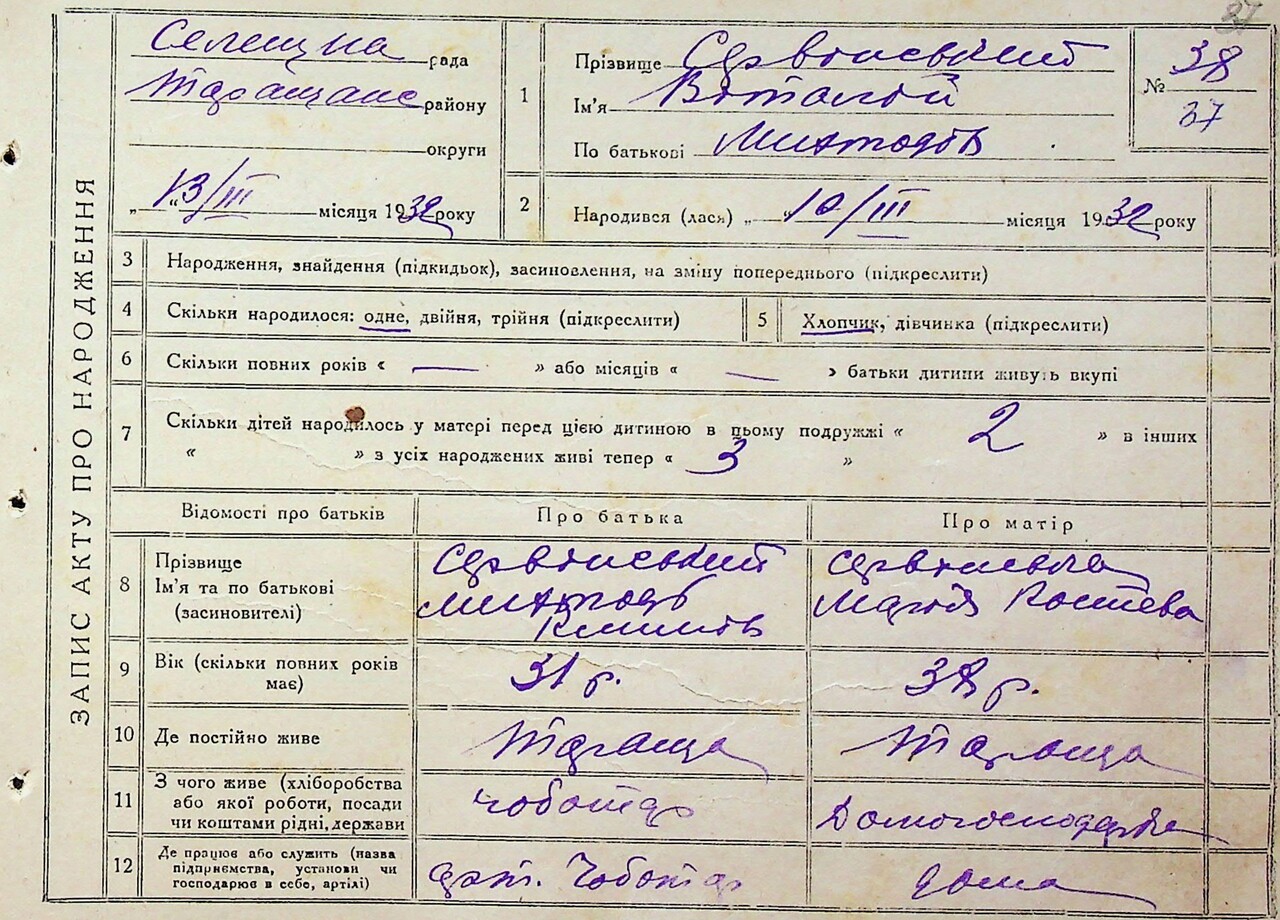 37
Селещна рада
Таращанс району
округи
„ 13/III місяця 1932 року
1
Прізвище
Ім'я Віталій
По батькові
№ 38
37
2
Народився (лася) „ 10/III місяця 1932 року
ЗАПИС АКТУ ПРО НАРОДЖЕННЯ
3 Народження, знайдення (підкидьок), засиновлення, на зміну попереднього (підкреслити)
4 Скільки народилося: одне, двійня, трійня (підкреслити)
5 Хлопчик, дівчинка (підкреслити)
6 Скільки повних років « — » або місяців « — » батьки дитини живуть вкупі
7 Скільки дітей народилось у матері перед цією дитиною в цьому подружжі « 2 » в інших
« » з усіх народжених живі тепер « 3 »
Відомості про батьків
Про батька
Про матір
8
Прізвище
Ім'я та по батькові
(засиновителі)
Марія Костева
9
Вік (скільки повних років
має)
31 р.
38 р.
10 Де постійно живе
Тараща
Тараща
11
З чого живе (хліборобства
або якої роботи, посади
чи коштами рідні, держави
чоботар
12
Де працює або служить (назва
підприємства, установи чи
господарює в себе, артілі)
арт. Чоботар
дома